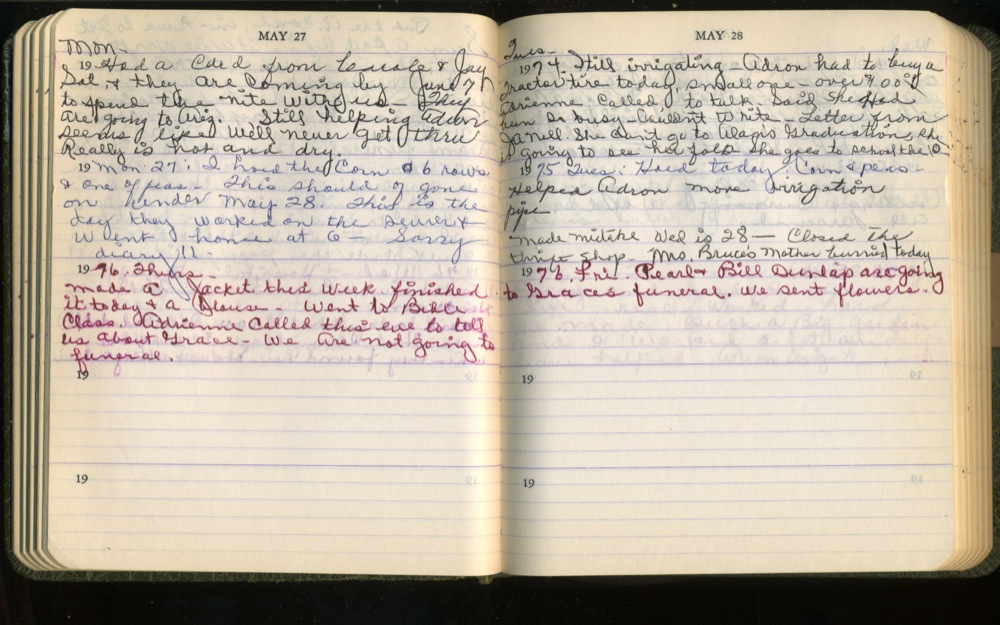 MAY 27
Mon-
19 Had a Card from & Jay
Sat. & they are Coming by June 7th
to spend the nite with us. They
are going to Ariz. Still helping Adron
seems like We'll never get thru
Really is hot and dry.
19 Mon 27: I hoed the Corn 6 rows
& one of peas- This should of gone
on under May 28 This is the
day they worked on the Sewer &
Went home at 6- Sorry
diary!!-
19 76. Thurs-
made a Jacket this week- finished
it today & a Blouse- Went to Bible
Class. Adrienne Called this eve to tell
us about Grace- We are not going to
funeral.
19
19
MAY 28
Tues-
1974 Still irrigating- Adron had to buy a
tractor tire today, small one- over
Adrienne Called to talk. Said She Had
been So busy- Couldn't Write- Letter from
She Can't go to Graduation, she
is going to see her folks She goes to school the 10
1975 Tues: Hoed today Corn & peas-
Helped Adron move irrigation
pipe
made mistke Wed is 28- Closed The
thrift Shop- Mrs. Bruce's Mother burried today
1976. Fri. Pearl & Bill Dunlap are going
to Graces funeral. We sent flowers-
19
19